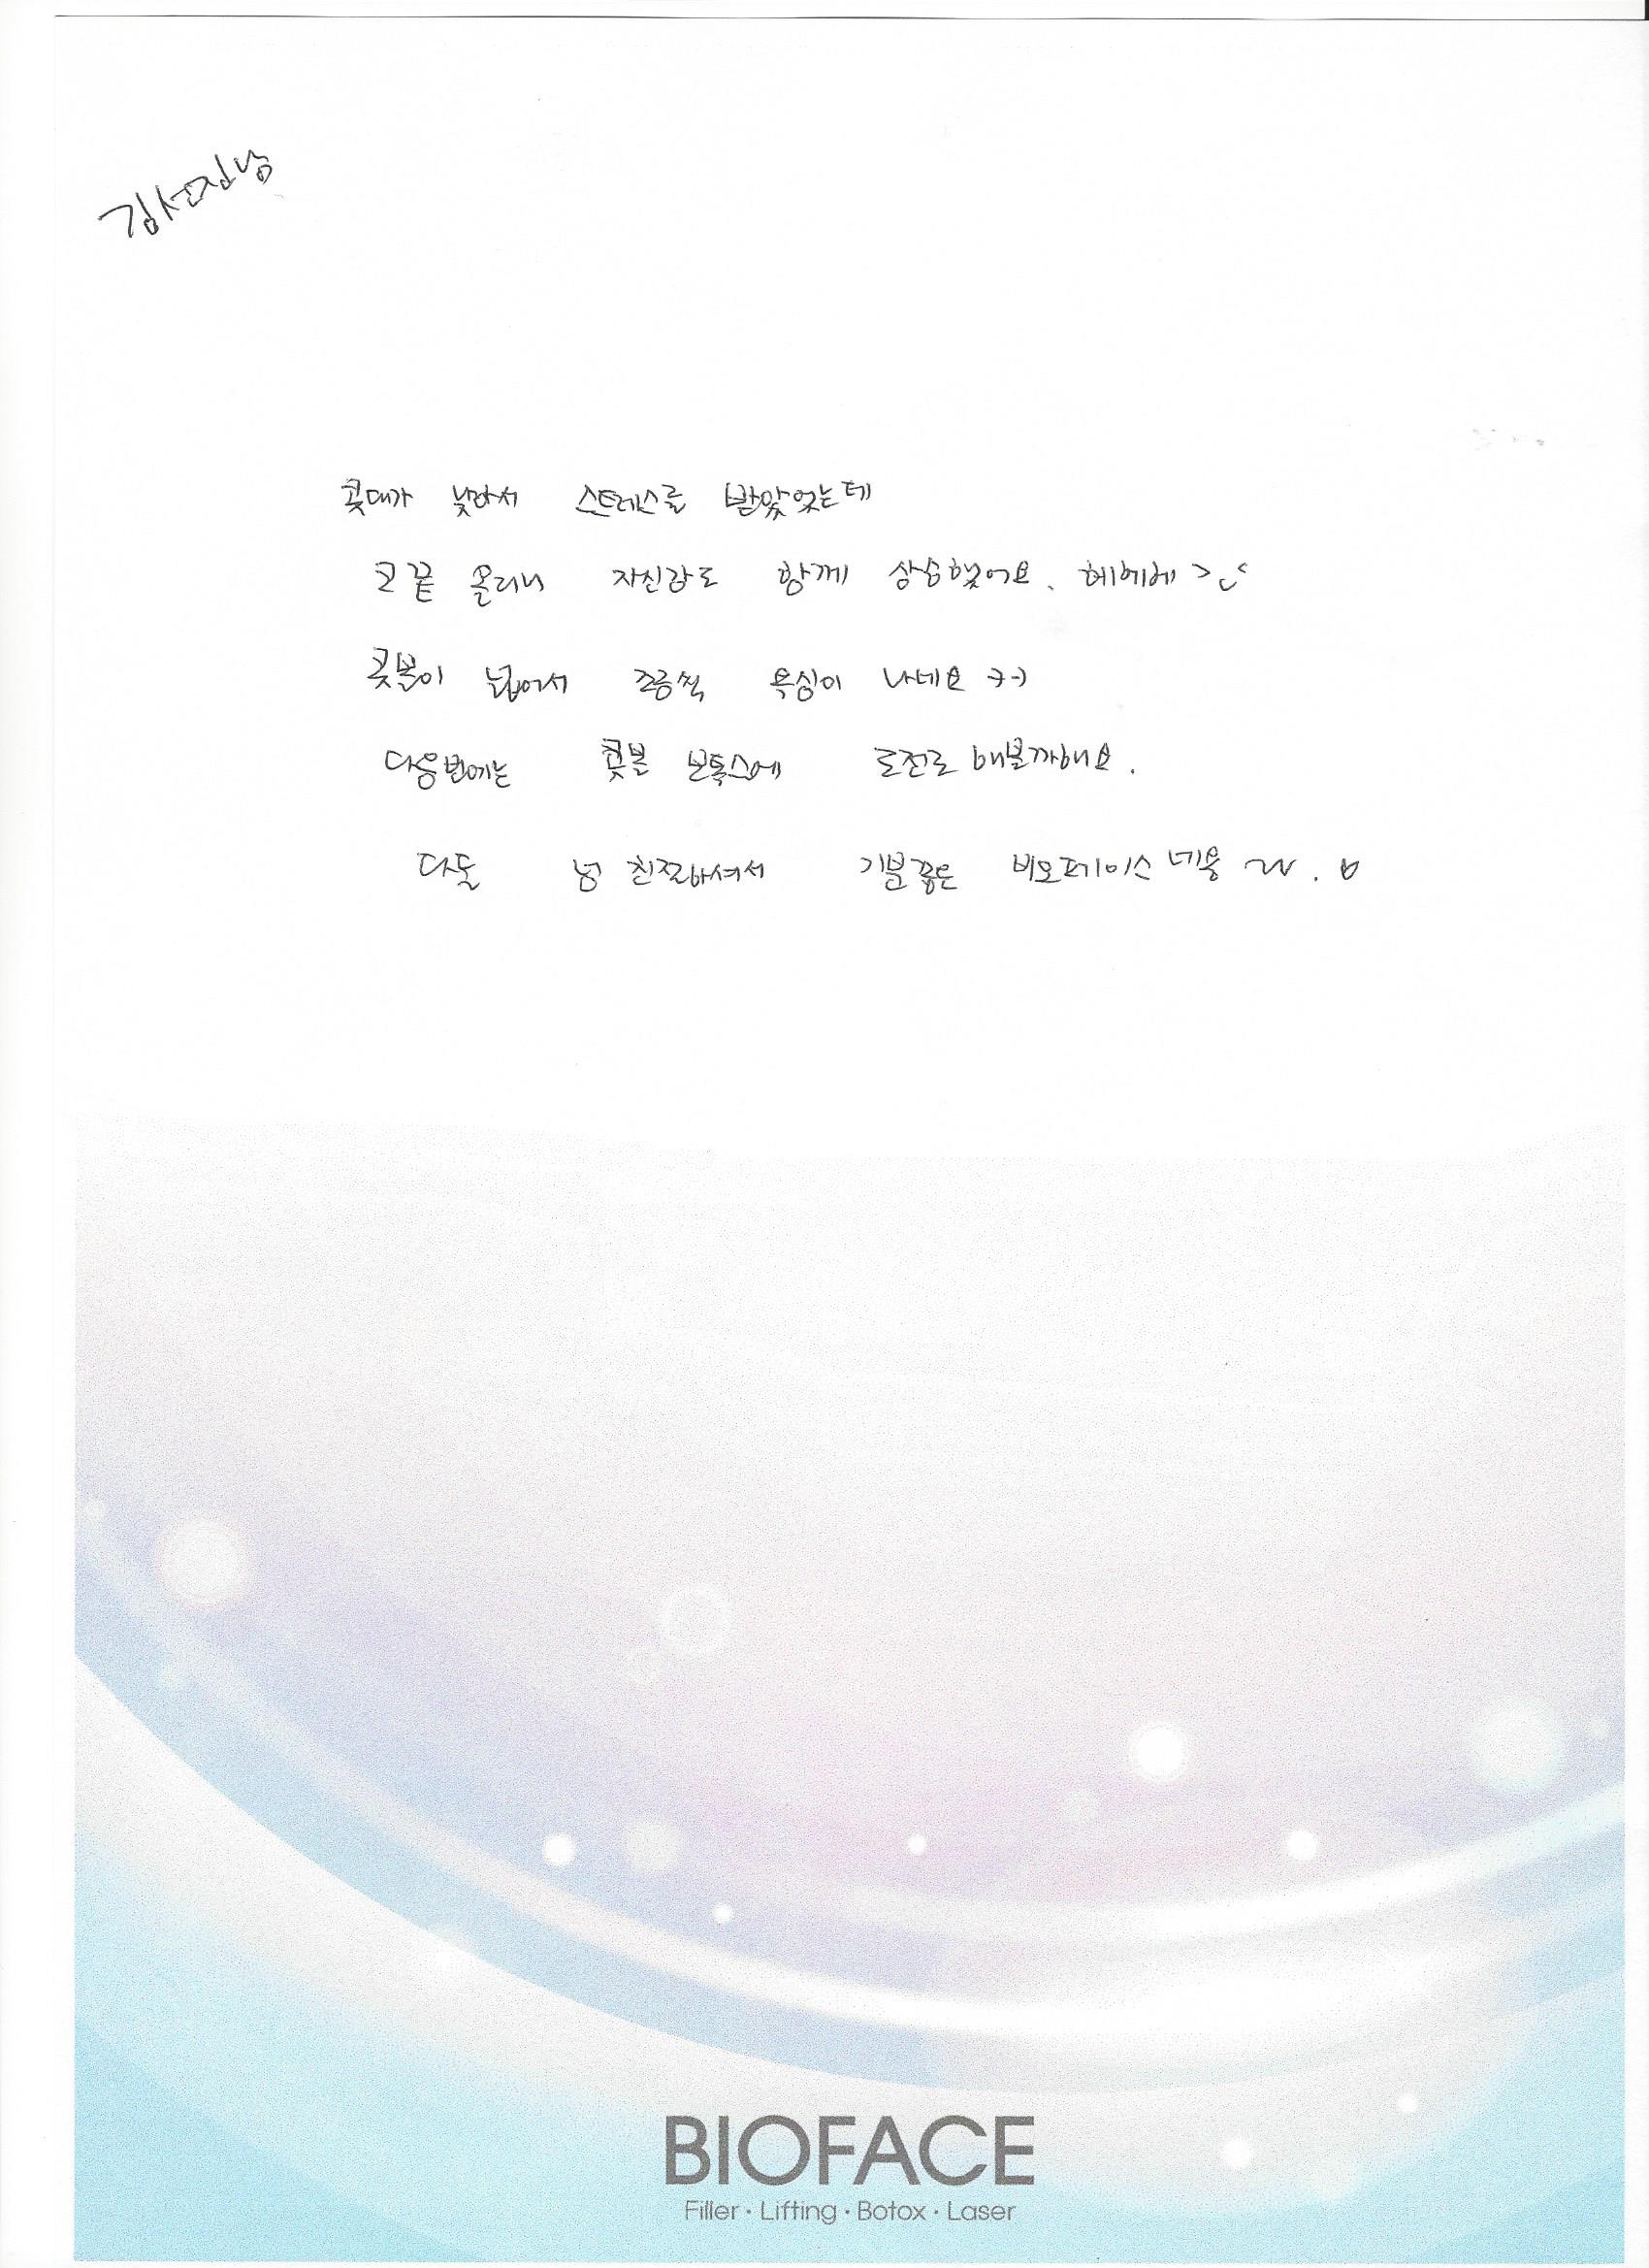 김선진님
콧대가 낮아서 스트레스를 받았었는데
코 끝 올리니 자신감도 함께 상승했어요. 헤헤헤 >_<
콧볼이 넓어서 조금씩 욕심이 나네요 ㅋㅋ
다음번에는 콧볼 보톡스에 도전도 해볼까해요.
다들 넘 친절하셔서 기분 좋은 비오페이스 네용 ~~. ♡
BIOFACE
Filler · Lifting · Botox · Laser